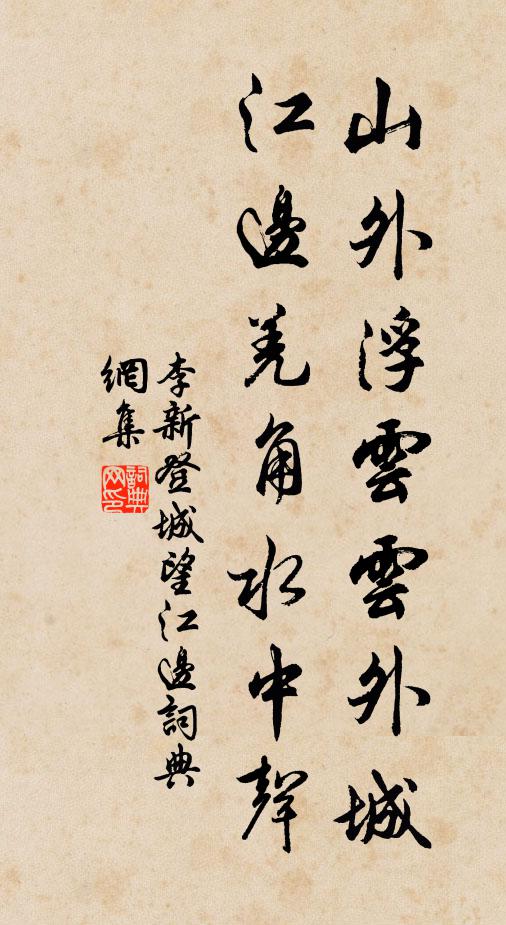 山外浮雲雲外城
江邊羌角水中聲
李新登城望江邊詞典
網集
詞典網印